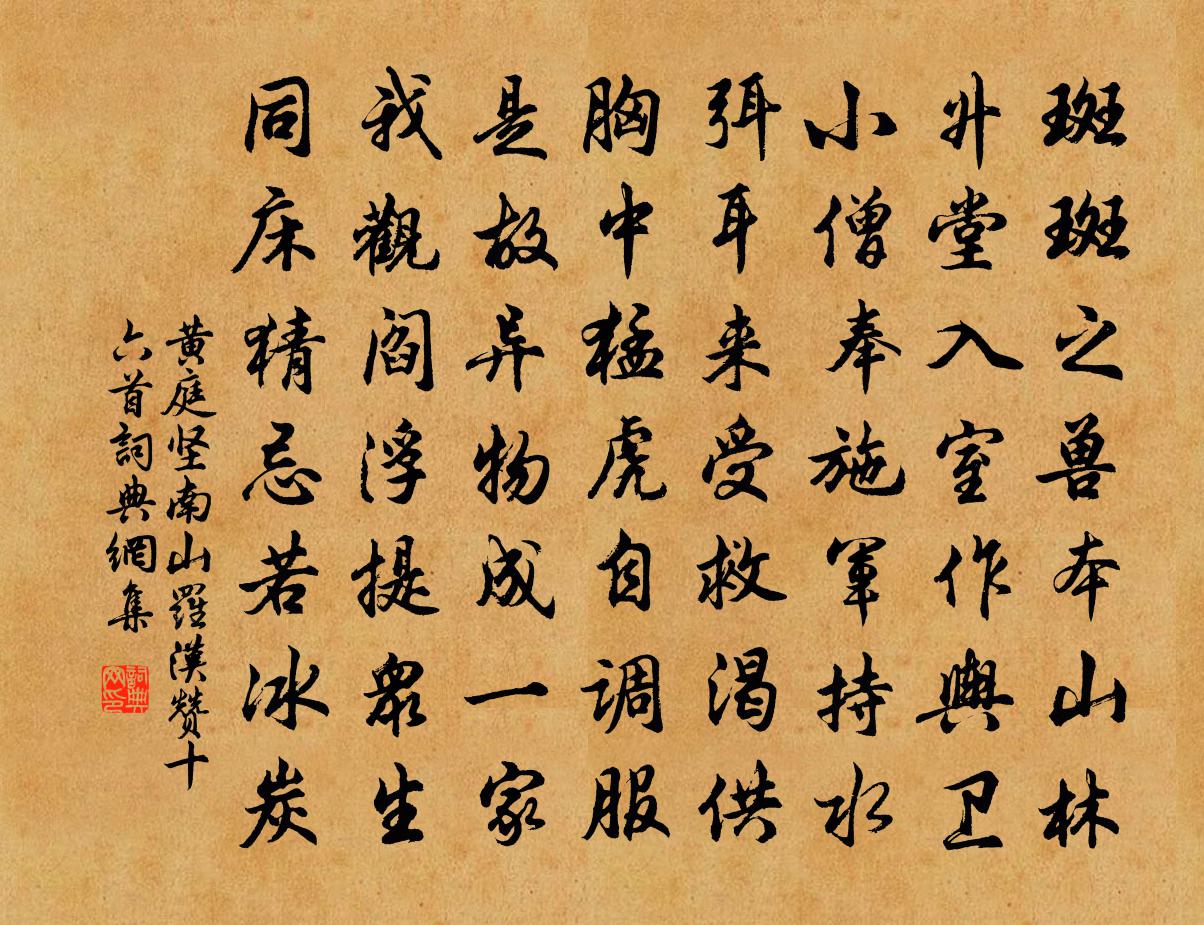 斑斑之兽本山林
升堂入室作舆卫
小僧奉施军持水
弭耳来受救渴供
胸中猛虎自调服
是故异物成一家
我觀阎浮提眾生
同床猜忌若冰炭
黄庭坚南山羅漢赞十
六首詞典網集
詞典
网印